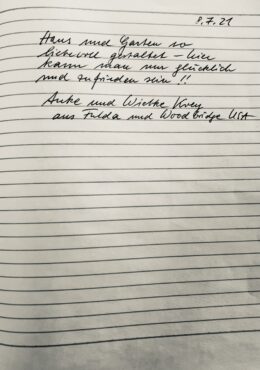 8.7.21
Haus und Garten so
liebevoll gestaltet – hier
kann man nur glücklich
und zufrieden sein !!
Anke und Wiebke Krey
aus Fulda und Woodbridge USA